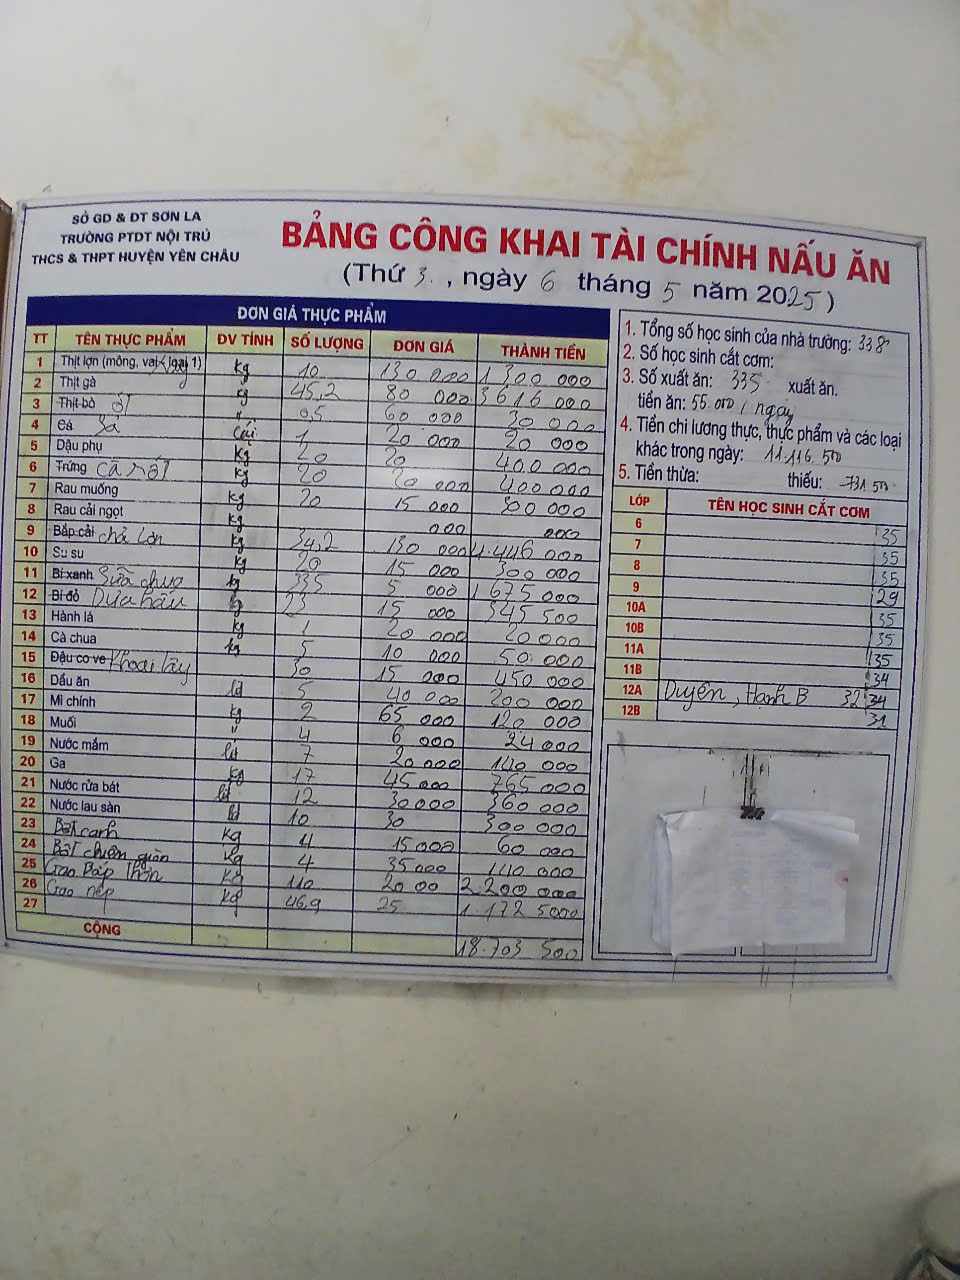 SỞ GD & ĐT SƠN LA
TRƯỜNG PTDT NỘI TRÚ
THCS & THPT HUYỆN YÊN CHÂU
BẢNG CÔNG KHAI TÀI CHÍNH NẤU ĂN
(Thứ 3. , ngày 6 tháng 5 năm 2025)
ĐƠN GIÁ THỰC PHẨM
TT TÊN THỰC PHẨM ĐV TÍNH SỐ LƯỢNG ĐƠN GIÁ THÀNH TIỀN
1 Thịt lợn (mông, vai loại 1) kg 10 130 000 1 300 000
2 Thịt gà kg 45,2 80 000 3 616 000
3 Thịt bò ớt " 0,5 60 000 30 000
4 Cá Sả Cái 1 20 000 20 000
5 Dậu phụ kg 20 20 400 000
6 Trứng cà rốt kg 20 20 000 400 000
7 Rau muống kg 20 15 000 300 000
8 Rau cải ngọt kg 000 000
9 Bắp cải chả lợn kg 34,2 130 000 4.446 000
10 Su su kg 20 15 000 300 000
11 Bí xanh Sữa chua kg 335 5 000 1 675 000
12 Bí đỏ Dưa hấu kg 23 15 000 345 500
13 Hành lá kg 1 20 000 20 000
14 Cà chua kg 5 10 000 50 000
15 Đậu co ve Khoai tây 30 15 000 450 000
16 Dầu ăn lít 5 40 000 200 000
17 Mì chính kg 2 65 000 120 000
18 Muối " 4 6 000 24 000
19 Nước mắm lít 7 20 000 140 000
20 Ga kg 17 45 000 765 000
21 Nước rửa bát lít 12 30 000 360 000
22 Nước lau sàn lít 10 30 300 000
23 Bột canh kg 4 15 000 60 000
24 Bột chiên giòn kg 4 35 000 140 000
25 Gạo Bắp thơm kg 110 20 00 2 200 000
26 Gạo nếp kg 46,9 25 1.172 5000
27
CỘNG 18.703 500
1. Tổng số học sinh của nhà trường: 338
2. Số học sinh cắt cơm:
3. Số xuất ăn: 335 xuất ăn.
tiền ăn: 55.000 / ngày
4. Tiền chi lương thực, thực phẩm và các loại
khác trong ngày: 11.116.500
5. Tiền thừa: thiếu: -731 500
LỚP TÊN HỌC SINH CẮT CƠM
6 35
7 35
8 35
9 29
10A 35
10B 35
11A 35
11B 34
12A Duyên, Hạnh B 32 34
12B 31